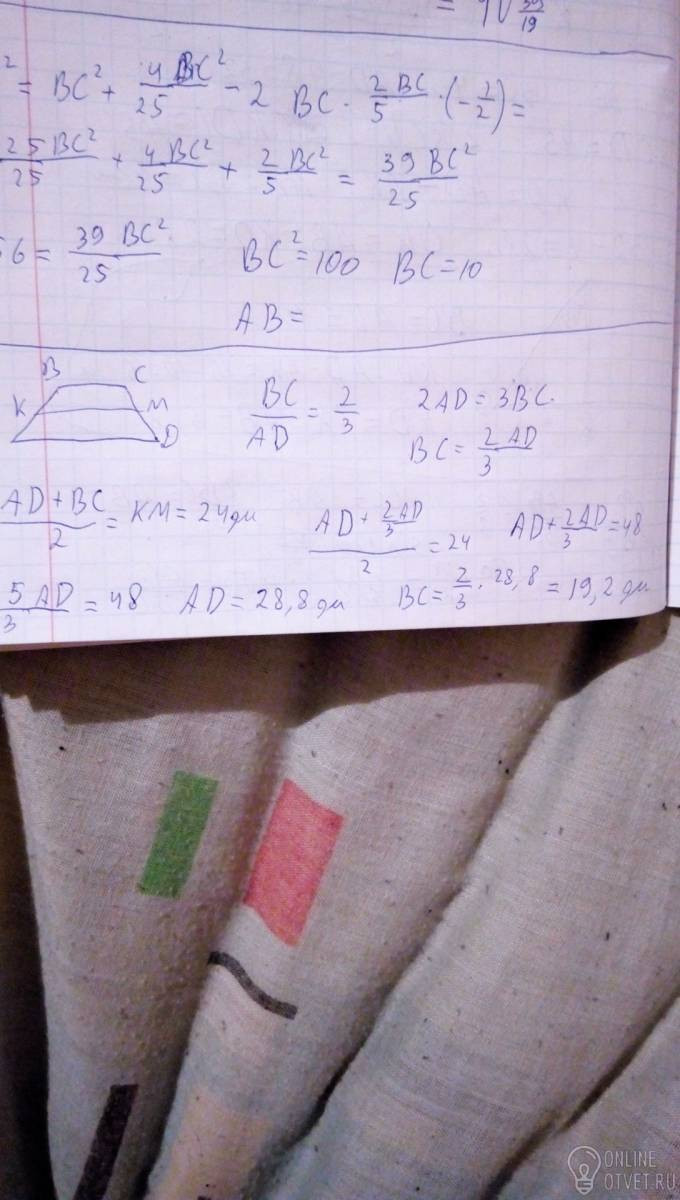 = 90 39/19
² = BC² + 4BC²/25 - 2 BC · 2BC/5 · (-1/2) =
25BC²/25 + 4BC²/25 + 2BC²/5 = 39BC²/25
56 = 39BC²/25 BC² = 100 BC = 10
AB =
B C
K M
D
BC/AD = 2/3 2AD = 3BC.
BC = 2AD/3
AD + BC/2 = KM = 24 дм AD + 2AD/3/2 = 24 AD + 2AD/3 = 48
5AD/3 = 48 AD = 28,8 дм BC = 2/3 · 28,8 = 19,2 дм
ONLINE
OTVET.RU